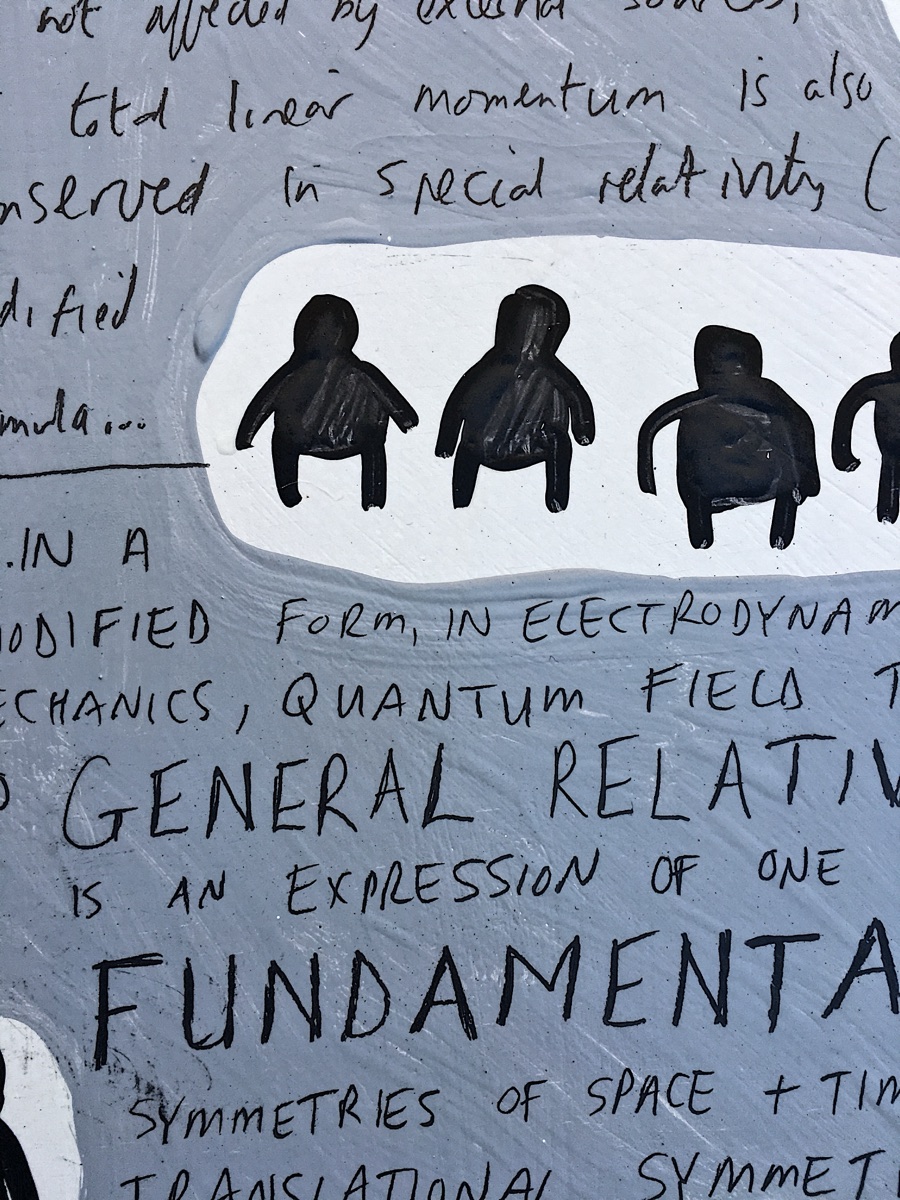 not affected by external sources,
total linear momentum is also
nserved in special relativity (
dified
mula...
.IN A
MODIFIED FORM, IN ELECTRODYNAM
ECHANICS, QUANTUM FIELD T
GENERAL RELATIV
IS AN EXPRESSION OF ONE
FUNDAMENTA
SYMMETRIES OF SPACE + TIM
TRANSLATIONAL SYMMET